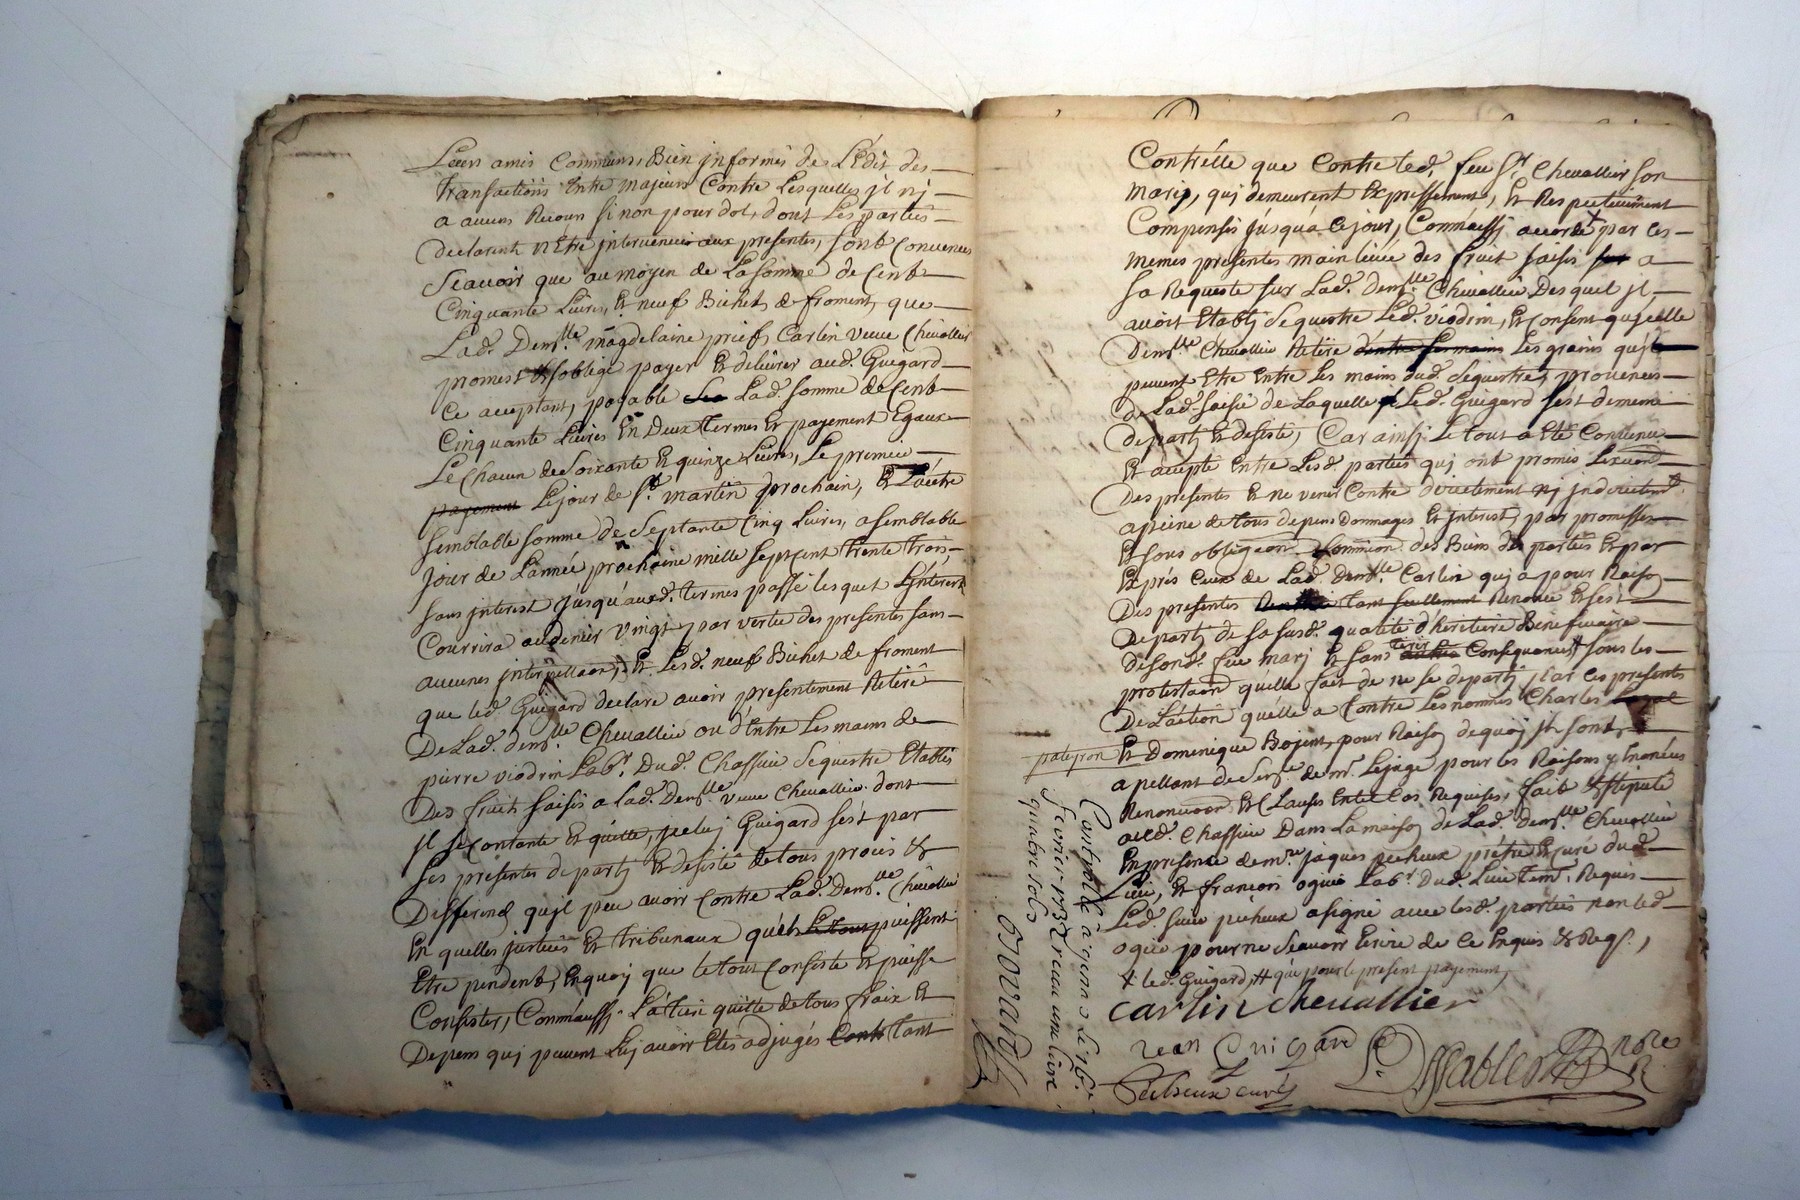 Leurs amis Communs, Bien jnformés de L'Edit des
transactions Entre majeurs Contre Lesquelles jl nj
a aucun Recour si non pour dol, dont Les parties
declarent n'Etre intervenue aux presentes, sont Convenues
Scauoir que au moyen de La somme de Cent
Cinquante Liures, & neuf Bichet de froment, que
Lad. Dem.lle magdelaine Carlin veuue Cheuallier
promest & s'oblige payer & deliurer aud. Guigard
Ce acceptant, payable Lad. somme de Cent
Cinquante Liures En Deux termes & payement Egaux
Le Chacun de Soixante & quinze Liures, Le premier
payement Le jour de s.t martin prochain, & L'autre
semblable somme de Septante Cinq Liures, a semblable
jour de L'année prochaine mille sept cent trente trois
sans jnterest jusqu'auxd. termes passé lesquel L'jnterest
Courrira au denier vingt par vertu des presentes sans
aucunes &. Lesd. neuf Bichet de froment
que led. Guigard declare auoir presentement Retiré
De Lad. dem.lle Cheuallier ou d'Entre Les mains de
pierre viodrin Lab.r Dud. Chassieu Sequestre Etablis
Des fruits saisis a Lad. Dem.lle veuue Cheuallier dont
jl se contante & quitte, Guigard s'est par
ses presentes departy & desisté de tous procés &
Differend qu'jl peu auoir contre Lad. Dem.lle Cheuallier
En quelles justices & tribunaux qu'ils Le tout puissent
Etre pendent, En quoj que le tout Consiste & puisse
Consister, Comm'aussy quitte de tous fraix &
Depens quj peuuent Luj auoir Etés adjugés Cont tant
Contr'elle que Contre led. feu S.r Cheuallier son
mary, quj demeurent Expressement, & Respectiuement
Compensés jusqu'á Ce jour, Comm'aussj accorde par ces
memes presentes main leuée des fruit saisis sur a
sa Requeste sur Lad. dem.lle Cheuallier Desquel jl
auoit Etably Sequestre Led. viodrin, & Consent qu'jcelle
Dem.lle Cheuallier Retire Les grains qu'jl
peuuent Etre Entre Les mains dud. Sequestre, prouenus
de Lad. saisie de Laquelle Led. Guigard s'est dememe
departy & desisté, Car ainsj Le tout a Eté Conuenu
& accepté Entre Lesd. parties quj ont promis
Des presentes & ne venir Contre directement nj jndirectem.t
a peine de tous depens dommages & jnterest, par promesses
& sous obligeaon des Biens des parties & par
Exprés Ceux de Lad. Dem.lle Carlin quj a pour Raison
Des presentes tant seullement Renoncé & s'est
Departy de sa susd. qualité d'heritiere Beneficiaire
de sond. feu marj & sans tirer Consequences sous les
protestaon qu'elle fait de ne se departy par ces presentes
De L'action qu'elle a Contre Les nommés Charles
pateyron & Dominique Bojent, pour Raison de quoj jls sont
apellant de de m.r Lejage pour les Raisons y Enoncées
Renonceaon & Clauses Entre Cas Requises, fait & stipulé
aud. Chassieu Dans La maison de Lad. dem.lle Cheuallier
En presence de m.re jaques pecheux prêtre & curé dud.
Lieu, & françois ogier Lab.r Dud. Lieu tem. Requis
Led. sieur pecheux a signé auec lesd. parties non led.
ogier pour ne scauoir Ecrire de ce Enquis & Reqs.,
& led. Guigard, # que pour le present payement,
carlin cheuallier
jean Guigard
Pecheux curé
nore
Contrôllé à Le 16.e
feurier 1732 receu une liure
quatre sols